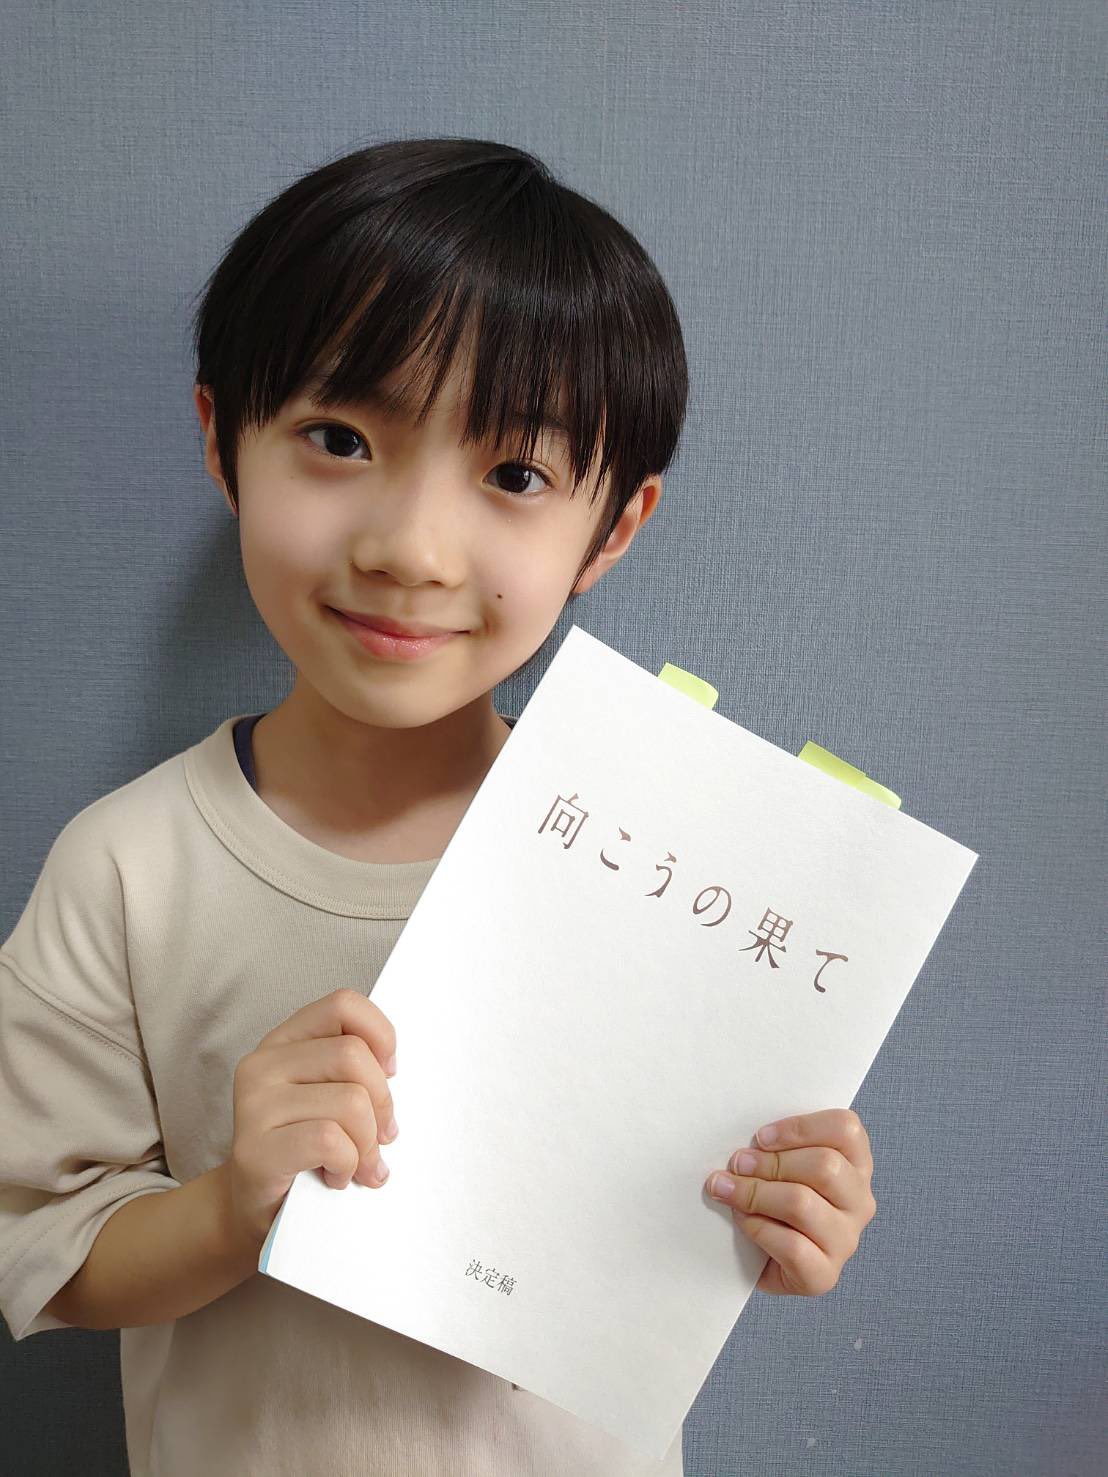 向こうの果て
決定稿